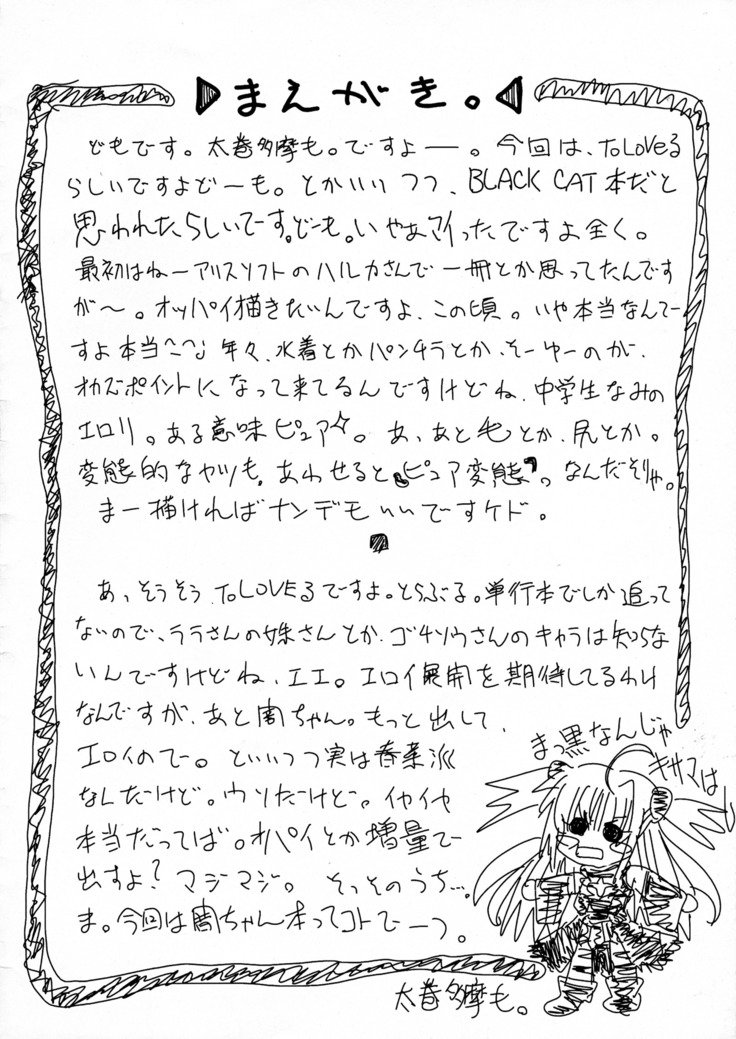 まえがき。
どもです。太巻多摩も。ですよー。今回は、ToLOVEる
らしいですよどーも。とかいいつつ、BLACK CAT本だと
思われたらしいでーす。どーも。いやぁマイったですよ全く。
最初はねーアリスソフトのハルカさんで一冊とか思ってたんです
が〜。オッパイ描きたいんですよ、この頃。いや本当なんでー
すよ本当〜 年々、水着とかパンチラとか、そーゆーのが、
オカズポイントになって来てるんですけどね、中学生なみの
エロリ。ある意味ピュア☆。あ、あと毛とか、尻とか。
変態的なヤツも。あわせると〝ピュア変態〟。なんだそりゃ。
まー描ければナンデモいいですケド。
あっそうそう、ToLOVEるですよ。とらぶる。単行本でしか追って
ないので、ララさんの妹さんとか、ゴチソウさんのキャラは知らな
いんですけどね、エエ。エロイ展開を期待してるわけ
なんですが、あと闇ちゃん。もっと出して、
エロいのでー。といいつつ実は春菜派
なんだけど。ウソだけど。イヤイヤ
本当だってば。オパイとか増量で
出すよ?マジマジ。そっそのうち…。
ま。今回は闇ちゃん本ってコトでーつ。
まっ黒なんじゃ
キサマは
太巻多摩も。